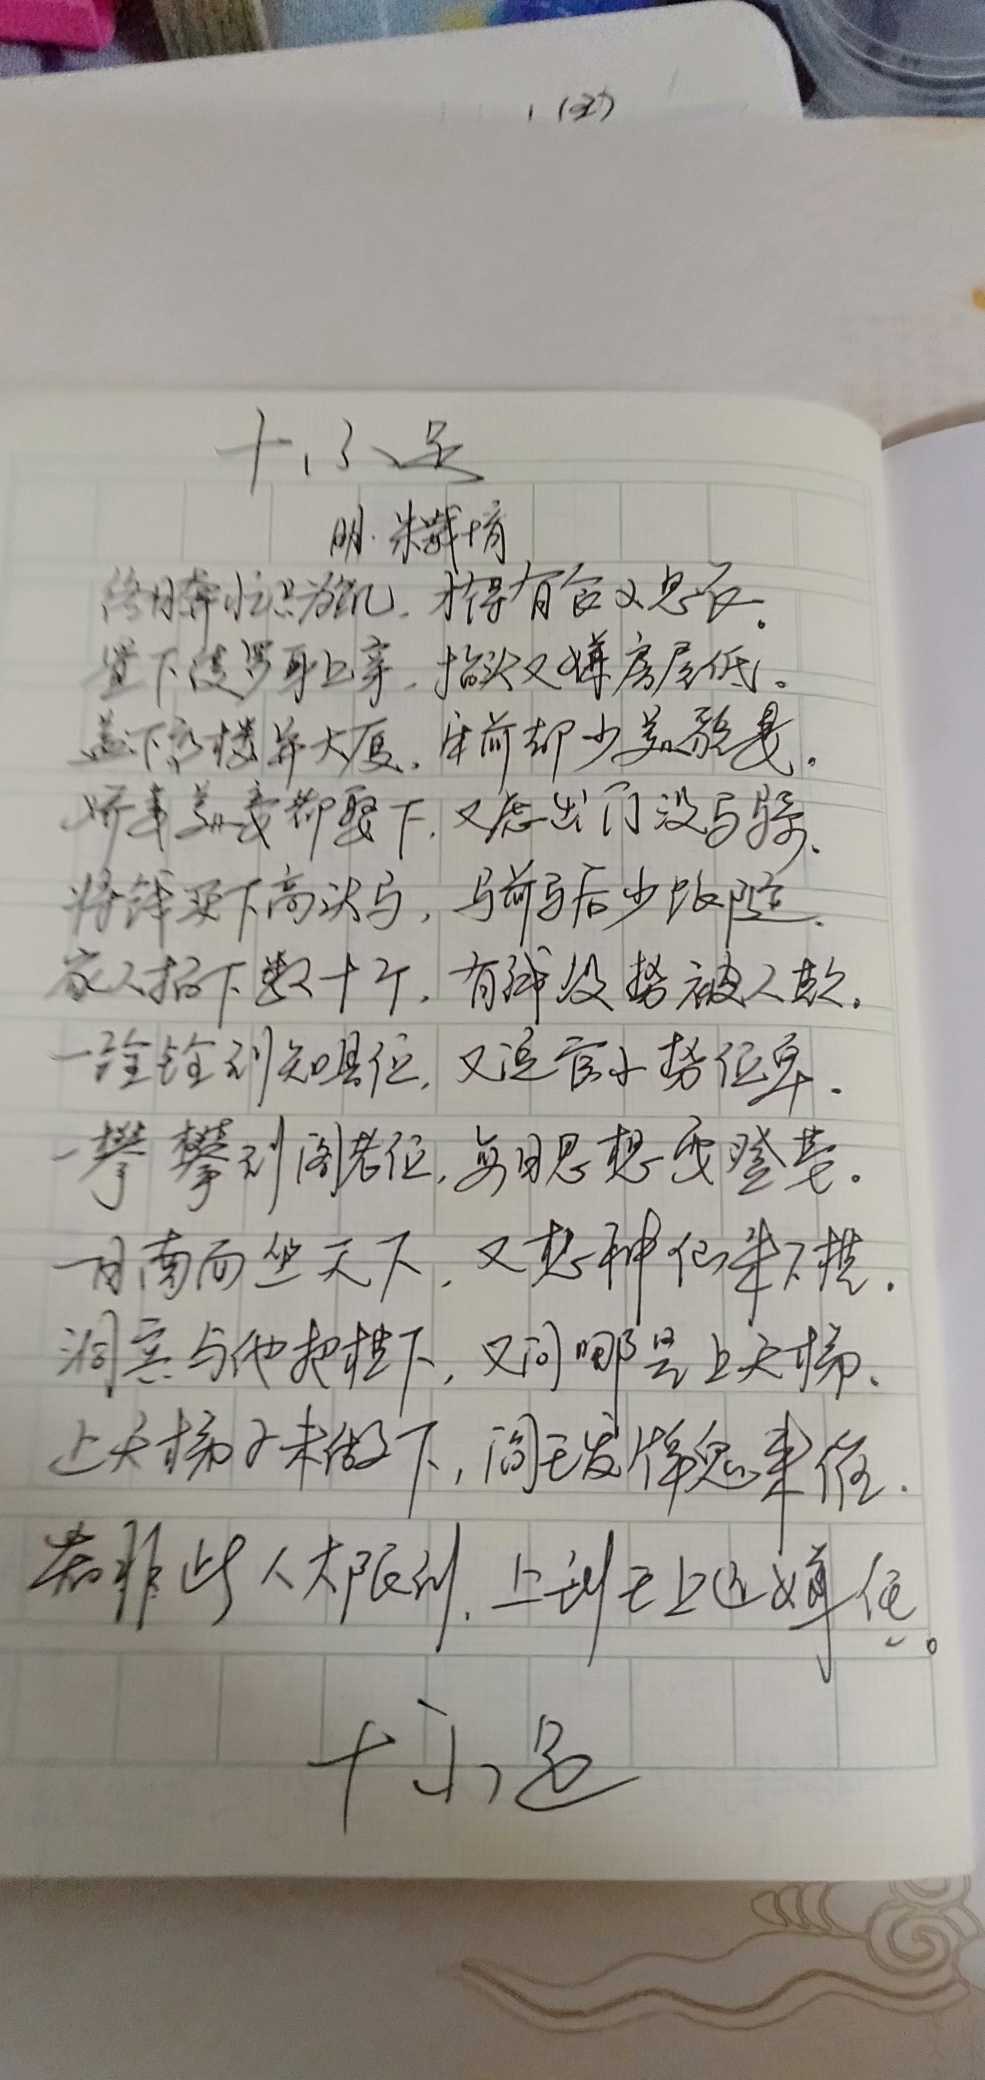 十不足
明·朱载堉
终日奔忙只为饥，才得有食又思衣。
置下绫罗身上穿，抬头又嫌房屋低。
盖下高楼并大厦，床前却少美貌妻。
娇妻美妾都娶下，又虑出门没马骑。
将钱买下高头马，马前马后少跟随。
家人招下数十个，有钱没势被人欺。
一铨铨到知县位，又说官小势位卑。
一攀攀到阁老位，每日思想要登基。
一日南面坐天下，又想神仙来下棋。
洞宾与他把棋下，又问哪是上天梯。
上天梯子未做下，阎王发牌鬼来催。
若非此人大限到，上到天上还嫌低。
十不足